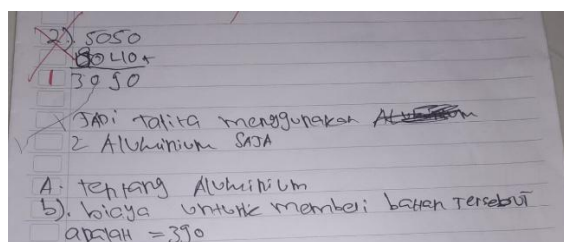 2). 5050
8040+
3090
JADi Talita menggunakan
2 Aluminium SAJA
A. tentang Aluminium
b). biaya untuk membeli bahan Tersebut
apalah = 390